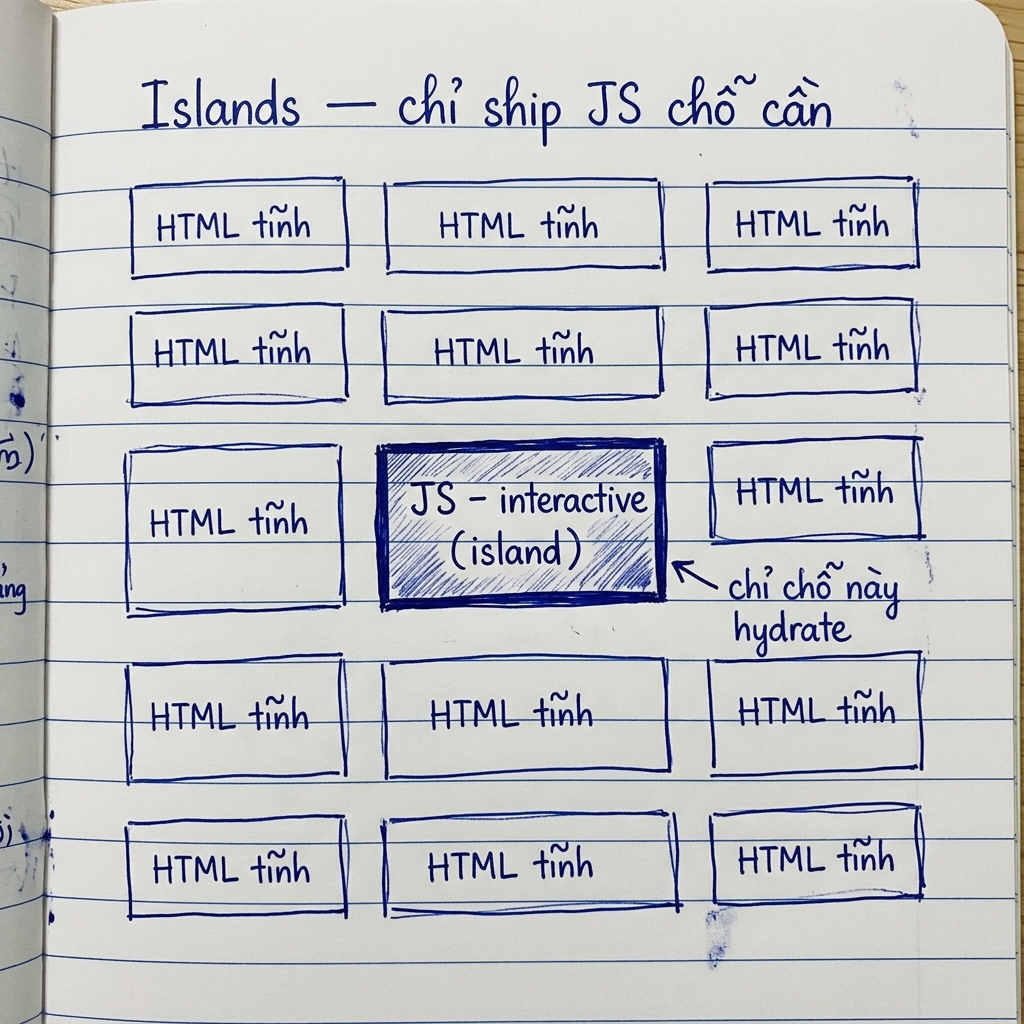 Islands — chỉ ship JS chỗ cần
HTML tĩnh HTML tĩnh HTML tĩnh
HTML tĩnh HTML tĩnh HTML tĩnh
HTML tĩnh
JS - interactive
(island)
HTML tĩnh
chỉ chỗ này
hydrate
HTML tĩnh HTML tĩnh HTML tĩnh
HTML tĩnh HTML tĩnh HTML tĩnh